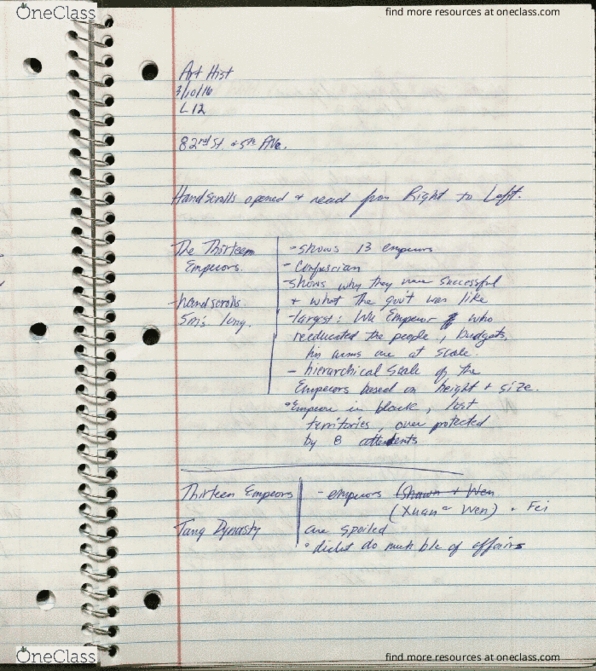 OneClass
find more resources at oneclass.com
Art Hist
7/10/16
L 12
82nd St & 5th Ave.
Handscrolls opened + read from Right to Left.
The Thirteen
Emperors.
- handscrolls
5m's long.
- shows 13 emperors
- Confucian
- shows why they were successful
+ what the gov't was like
- largest: Wu Emperor who
reeducated the people, budgets,
his arms are at scale.
- hierarchical scale of the
Emperors based on height + size.
• Emperor in black, lost
territories, over protected
by 8 attendents
Thirteen Emperors
Tang Dynasty
- emperors (Shawn + Wen
(Xuan + Wen) + Fei
are spoiled
• didn't do much b/c of affairs
OneClass
find more resources at oneclass.com